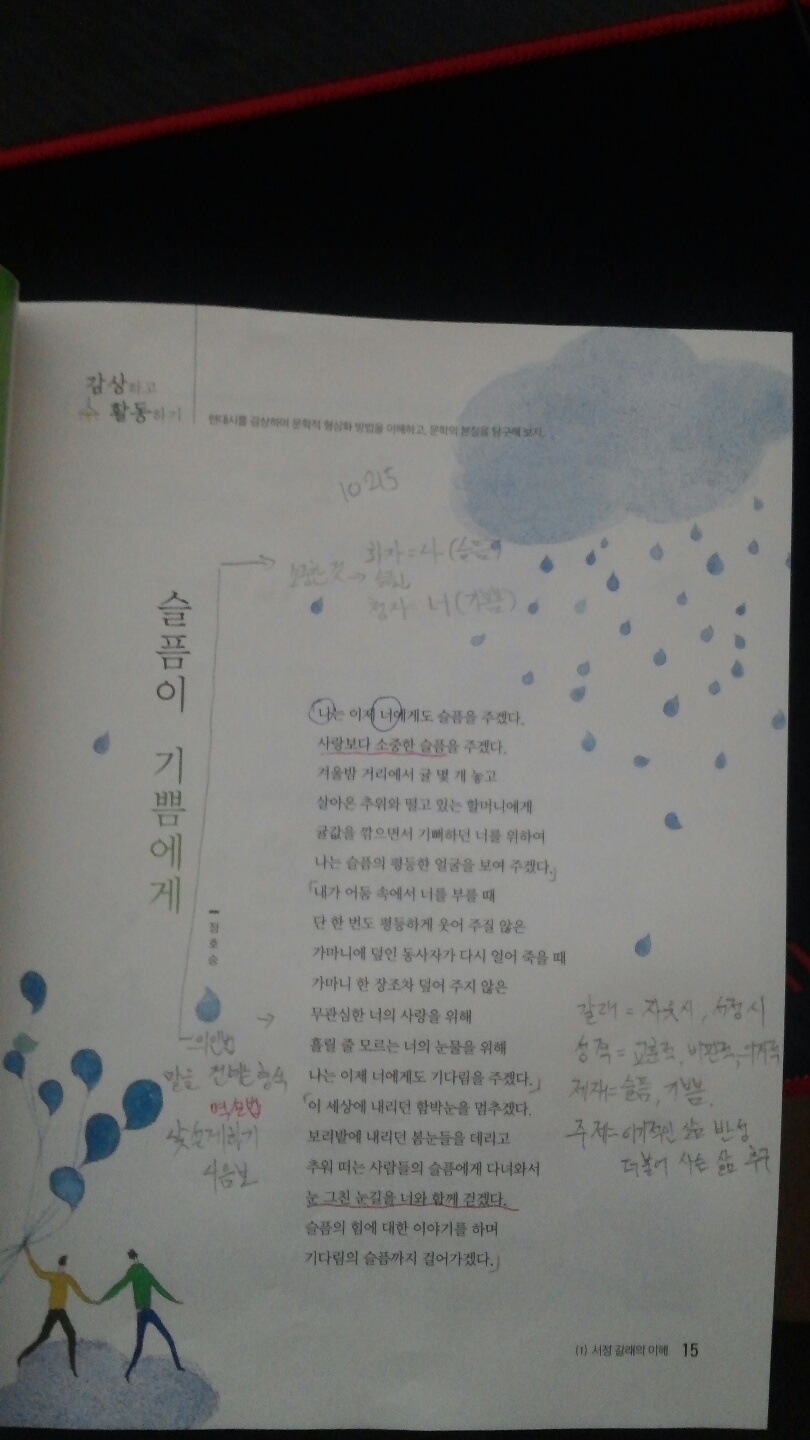 감상하고
활동하기
현대시를 감상하며 문학적 형상화 방법을 이해하고, 문학의 본질을 탐구해 보자.
10215
화자=나(슬픔)
소중한 것→슬픔
청자=너(기쁨)
슬픔이 기쁨에게
정호승
나는 이제 너에게도 슬픔을 주겠다.
사랑보다 소중한 슬픔을 주겠다.
겨울밤 거리에서 귤 몇 개 놓고
살아온 추위와 떨고 있는 할머니에게
귤값을 깎으면서 기뻐하던 너를 위하여
나는 슬픔의 평등한 얼굴을 보여 주겠다.」
「내가 어둠 속에서 너를 부를 때
단 한 번도 평등하게 웃어 주질 않은
가마니에 덮인 동사자가 다시 얼어 죽을 때
가마니 한 장조차 덮어 주지 않은
무관심한 너의 사랑을 위해
흘릴 줄 모르는 너의 눈물을 위해
나는 이제 너에게도 기다림을 주겠다.」
「이 세상에 내리던 함박눈을 멈추겠다.
보리밭에 내리던 봄눈들을 데리고
추워 떠는 사람들의 슬픔에게 다녀와서
눈 그친 눈길을 너와 함께 걷겠다.
슬픔의 힘에 대한 이야기를 하며
기다림의 슬픔까지 걸어가겠다.」
의인법
말을 건네는 형식
역설법
낯설게하기
4음보
갈래=자유시, 서정시
성격=교훈적, 비판적, 의지적
제재=슬픔, 기쁨.
주제=이기적인 삶 반성
더불어 사는 삶 추구
(1) 서정 갈래의 이해 15